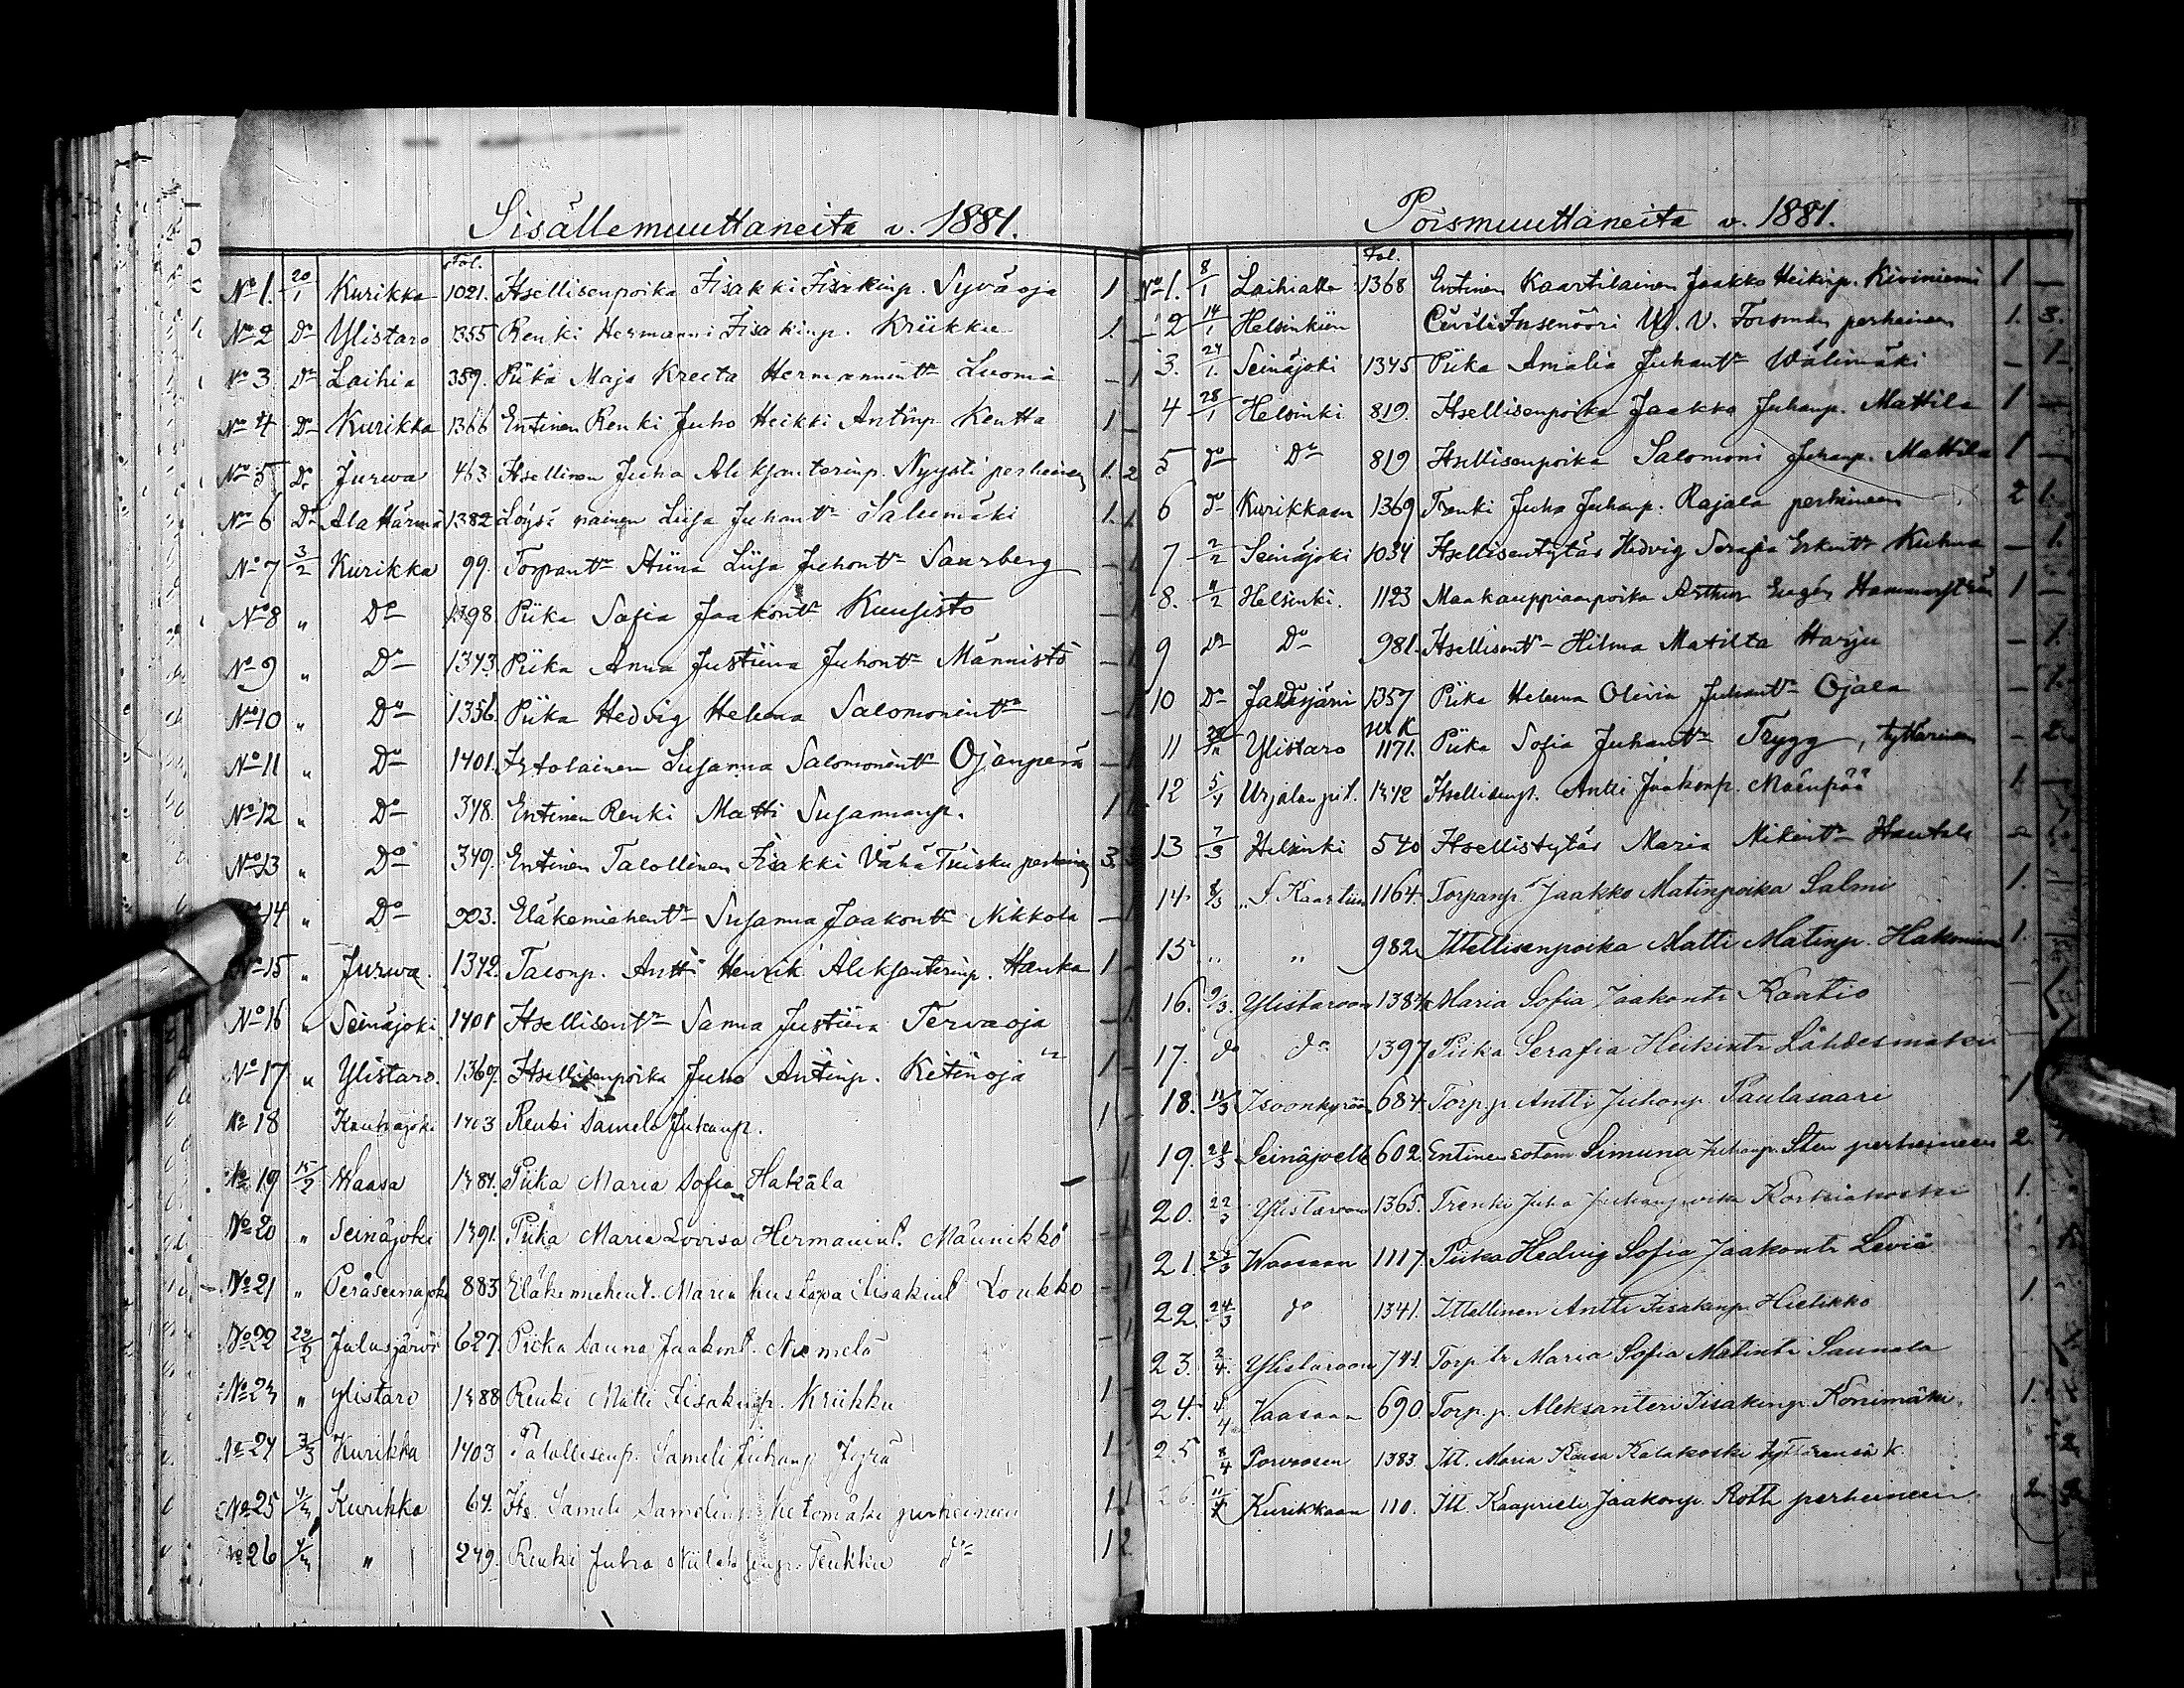 Sisällemuuttaneita v. 1881.
Fol.
No 1. 20/1 Kurikka 1021. Itsellisenpoika Iisakki Iisakinp. Syväoja 1
No 2 Do Ylistaro 1355 Renki Hermanni Iisakinp. Kriikku 1. -
No 3 Do Laihia 359. Piika Maja Kreeta Hermannintr Luoma - 1
No 4 Do Kurikka 1366 Entinen Renki Juho Heikki Antinp. Kentta 1 -
No 5 Do Jurwa 463 Itsellinen Juha Aleksanterinp. Nyysti perheinen 1. 2
No 6 Do Ala Härmä 1382 Löysä nainen Liisa Juhontr Salumäki 1. 1
No 7 3/2 Kurikka 99. Torpantr Stiina Liisa Juhontr Saarberg - 1
No 8 " Do 1398 Piika Sofia Jaakontr Kuusisto - 1
No 9 " Do 1343. Piika Anna Justiina Juhontr Männistö - 1
No 10 " Do 1356. Piika Hedvig Helena Salomonintr - 1
No 11 " Do 1401. Irtolainen Susanna Salomonintr Ojanperä - 1
No 12 " Do 348. Entinen Renki Matti Susannanp. 1
No 13 " Do 349. Entinen Talollinen Iisakki Vähä Tuisku perheinen 3. 3
14 " Do 903. Eläkemiehentr Susanna Jaakontr Nikkola - 1
No 15 " Jurwa. 1342. Talonp. Antti Henrik Aleksanterinp. Hauka 1 -
No 16 " Seinäjoki 1401 Itsellisentr Sanna Justiina Tervaoja - 1.
No 17 " Ylistaro. 1369. Itsellisenpoika Juho Antinp. Kitinoja 1 -
No 18 Kauhajoki 1403 Renki Sameli Juhanp. 1 -
No 19 15/2 Waasa 1384. Piika Maria Sofia Hakala - 1
No 20 " Seinäjoki 1391. Piika Maria Lovisa Hermanint. Männikkö - 1
No 21 " Peräseinäjoki 883 Eläkemiehent. Maria Kustaava Iisakint Loukko - 1
No 22 22/2 Jalasjärvi 627. Piika Sanna Jaakint. - 1
No 23 " Ylistaro 1388 Renki Matti Iisakinp. Kriikku 1 -
No 24 3/3 Kurikka 1403 Talollisenp. Sameli Juhanp Jyrä 1
No 25 4/3 Kurikka 64. Its. Sameli Samelinp. Ketomäki perheineen 1 1
No 26 4/3 " 249. Renki Juha Peukku do 1 2
Poismuuttaneita v. 1881.
Fol.
No 1. 8/1 Laihialla 1368 Entinen Kaartilainen Jaakko Heikinp. Kiviniemi 1 -
2 14/1 Helsinkiin Civili Insenööri W. V. Forsman perheineen 1. 3.
3. 24/1. Seinäjoki 1345 Piika Amalia Juhantr Wälimäki - 1.
4 28/1 Helsinki 819. Itsellisenpoika Jaakko Juhanp. Mattila 1 -
5 do Do 819 Itsellisenpoika Salomoni Juhanp. Mattila 1 -
6 do Kurikkaan 1369 Trenki Juha Juhanp. Rajala perheineen 2 1.
7 2/2 Seinäjoki 1034 Itsellisentytär Hedvig Serafia Erkintr Kuhna - 1.
8. 11/2 Helsinki. 1123 Maakauppiaanpoika Arthur Eugén Hammarström 1 -
9 Do Do 981. Itsellisentr Hilma Matilta Harju - 1.
10 Do Jalasjärvi 1357 Piika Helena Olivia Juhantr Ojala - 1.
11 Ylistaro 1171. Piika Sofia Juhantr Trygg, tyttärineen - 2.
12 5/4 Urjalan pit. 1342 Itsellisenp. Antti Jaakonp. Mäenpää 1.
13 7/3 Helsinki 540 Itsellistytär Maria Mikintr Hautala
14. 8/3 S. Kaartiin 1164. Torpanp. Jaakko Matinpoika Salmi 1.
15 " " 982. Ittellisenpoika Matti Matinp. Hakomäen 1.
16. 9/3. Ylistaroon 1384 Maria Sofia Jaakontr Kaatio
17. do do 1397. Piika Serafia Heikintr Lähdesmäki
18. 11/3 Isoonkyröön 684. Torp.p. Antti Juhonp. Paulasaari 1.
19. 21/3 Seinäjoelle 602. Entinen sotam. Simuna Juhanp. Sten perheineen 2.
20. 22/3 Ylistaroon 1365. Trenki Juha Juhanpoika Korkiakoski 1.
21. 23/3 Waasaan 1117. Piika Hedvig Sofia Jaakontr Leviä
22. 24/3 do 1341. Ittellinen Antti Iisakinp. Hietikko 1.
23. 2/4. Ylistaroon 741. Torp.tr Maria Sofia Matintr Saunala
24. 4/4 Vaasaan 690. Torp.p. Aleksanteri Iisakinp. Könimäki. 1.
25 8/4 Porvoosen 1383. Itt. Maria Kaisa Kalakoski tyttärensä k. 2.
26. 11/4 Kurikkaan 110. Itt. Kaaprieli Jaakonp. Roth perheineen. 2. 2